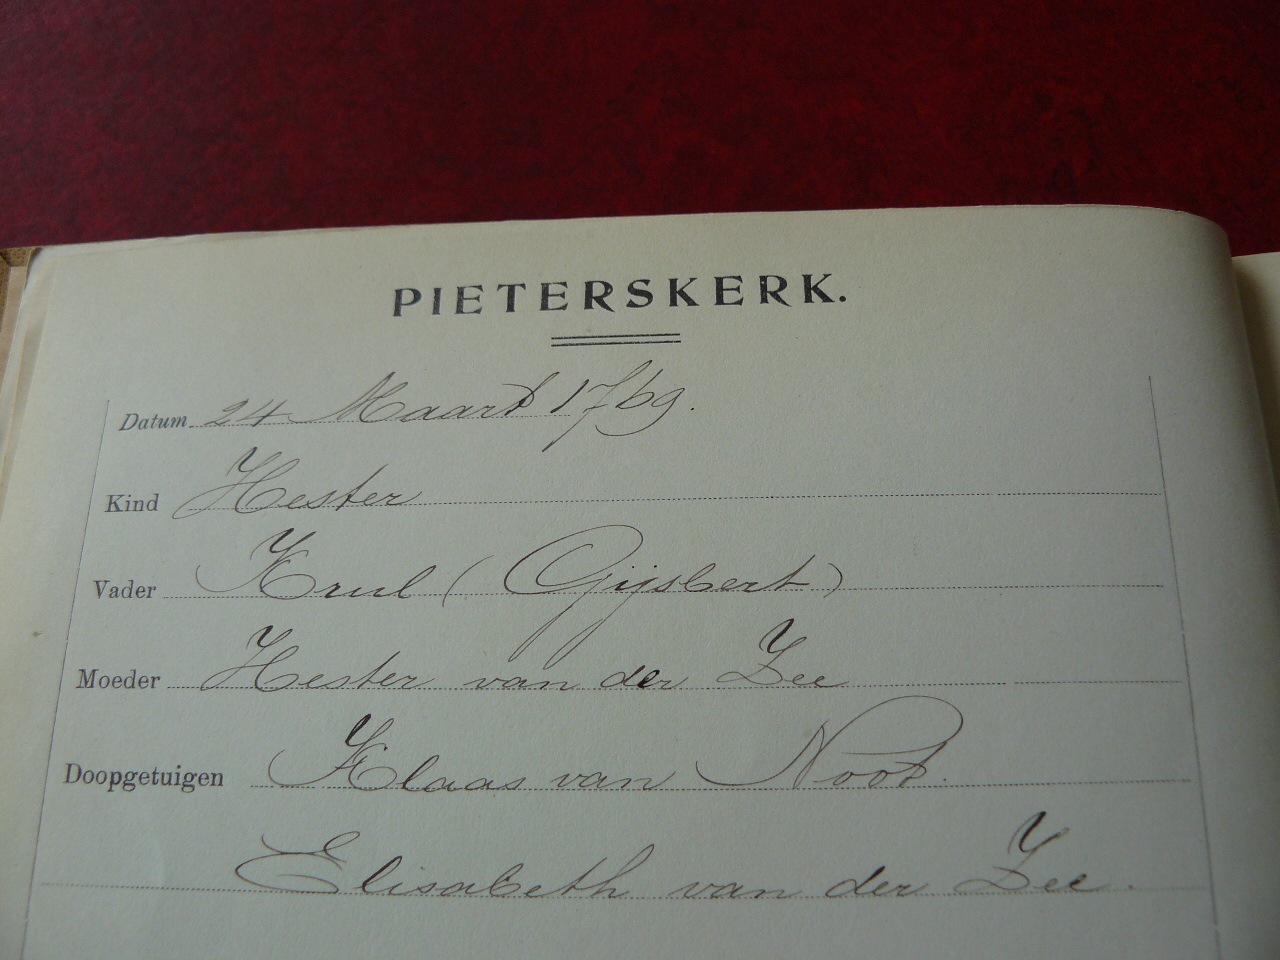 PIETERSKERK.
Datum 24 Maart 1769.
Kind Hester
Vader Krul (Gijsbert)
Moeder Hester van der Zee
Doopgetuigen Klaas van Noot.
Elisabeth van der Zee.